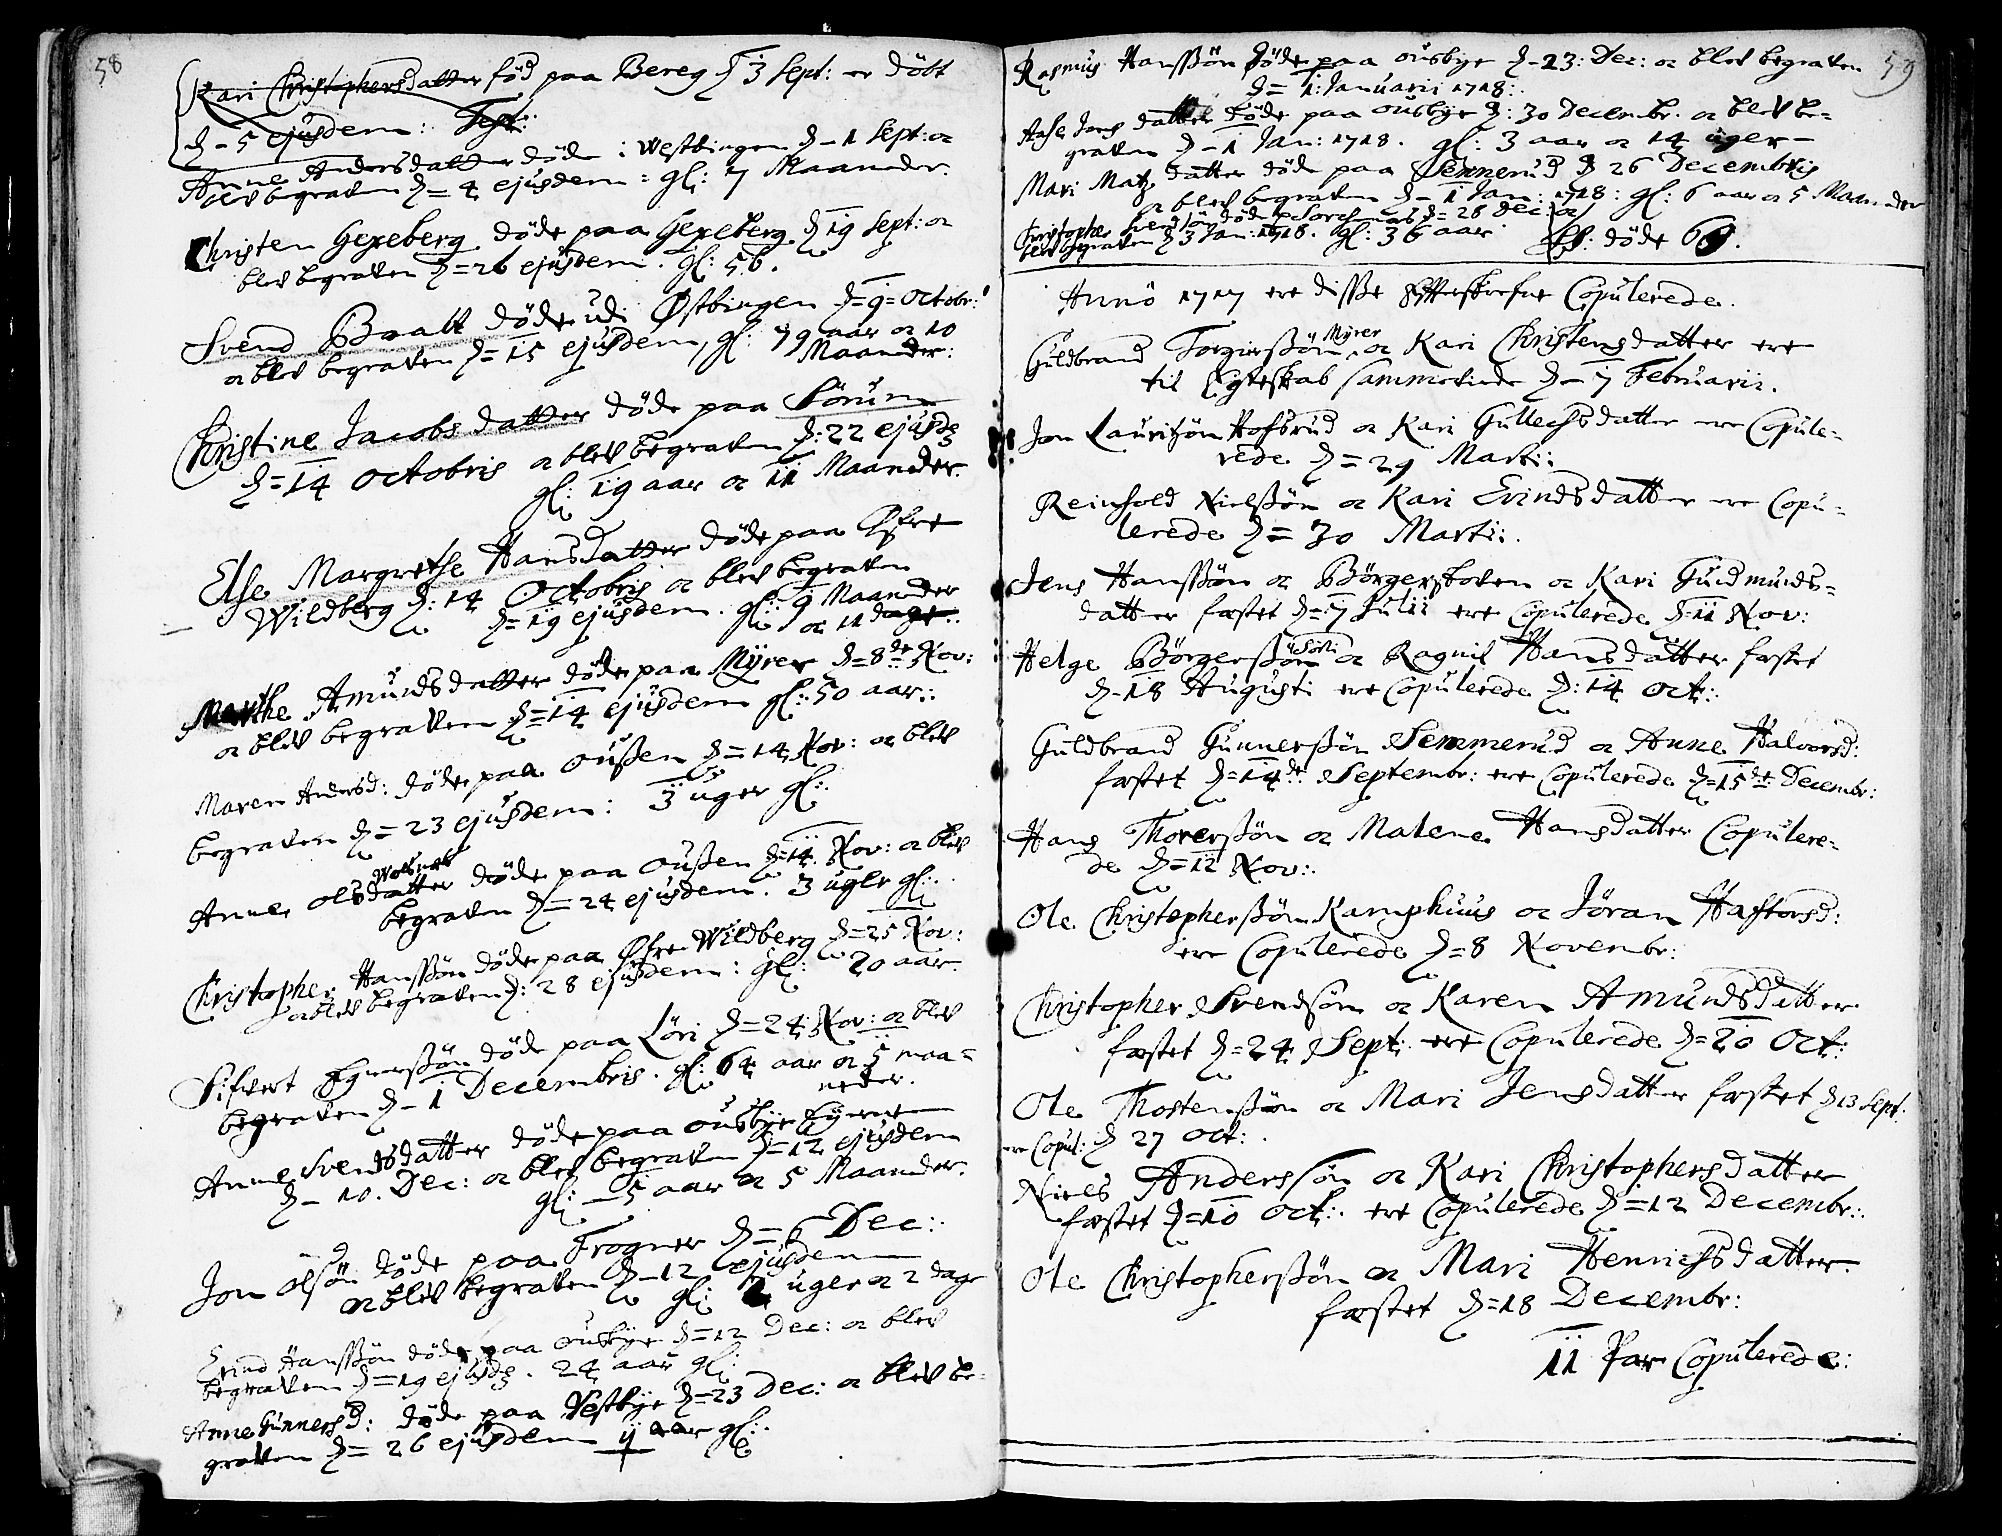 58
Kari Christophersdatter fød paa Bereg d 3 Sept: er døbt
d = 5 ejusdem: Test:
Anne Andersdatter døde i Westbingen d = 1 Sept: oc
blev begraven d = 4 ejusdem: gl: 7 Maaneder.
Christen Gexeberg døde paa Gexeberg d 19 Sept: oc
blev begraven d = 26 ejusdem. gl: 56.
Svend Bratt døde udi Østbingen d = 9 = Octobr:
oc blev begraven d = 15 ejusdem, gl: 79 aar oc 10
Maaneder:
Christine Jacobsdatter døde paa Sörum
d = 14 Octobris oc blev begraven d: 22 ejusd
gl: 19 aar oc 11 Maaneder.
Else Margrethe Hansdatter døde paa Øfre
Wildberg d: 14 Octobris oc blev begraven
d = 19 ejusdem. gl: 9 Maaneder
oc 11 dage.
Marthe Amundsdatter døde paa Myrer d = 8de Nov:
oc blev begraven d = 14 ejusdem gl: 50 aar.
Maren Andersd: døde paa Oussen d = 14 Nov: oc blev
begraven d = 23 ejusdem: 3 uger gl:
Anne Olsdatter døde paa Oussen d = 14 Nov: oc blev
begraven d = 24 ejusdem. 3 uger gl:
Christopher Hanssøn døde paa Øfre Wildberg d = 25 Nov:
oc blev begraven d: 28 ejusdem: gl: 20 aar.
Sifvert døde paa Löri d = 24 Nov: oc blev
begraven d = 1 Decembris. gl: 64 aar oc 5 maa=
neder.
Anne Svendsdatter døde paa Ousbye
d = 10. Dec: oc blev begraven d = 12 ejusdem
gl: 5 aar oc 5 Maaneder.
Jon Olsøn døde paa Frogner d = 6 Dec:
oc blev begraven d = 12 ejusdem
gl: uger oc 2 dage
Evind Hanssøn døde paa Ousbye d = 12 Dec: oc blev
begraven d = 19 ejusd. 24 aar gl:
Anne Gunnersd: døde paa Vestbye d = 23 Dec: oc blev be-
graven d = 26 ejusdem 4 aar gl:
59
Rasmus Hanssøn døde paa Ousbye d = 23: Dec: oc blev begraven
d = 1: Januarii 1718:
Aase Jensdatter døde paa Ousbye d: 30 Decembr. oc blev be-
graven d = 1 Jan: 1718. gl: 3 aar oc 14 uger
Mari Matzdatter døde paa Semmerud d 26 Decembris
oc blev begraven d = 1 Jan: 1718: gl: 6 aar oc 5 Maaneder
Christopher Svendsøn døde d = 26 Dec: oc
blev begraven d 3 Jan: 1718. gl: 36 aar. døde 69.
Anno 1717 ere disse Efterskrefne Copulerede.
Myrer
Guldbrand Torgierssøn, oc Kari Christensdatter ere
til Egteskab sammenviede d = 7 Februarii.
Jon Lauritzøn Hofbrud oc Kari Gullechsdatter ere Copule-
rede d = 29 Martii
Reinhold Nielssøn oc Kari Evindsdatter ere Copu-
lerede d = 30 Martii.
Jens Hanssøn oc Børgerskoven oc Kari Gudmunds-
datter fæstet d = 7 Julii ere Copulerede d = 11 Nov:
Helge Børgerssøn oc Ragnil Hansdatter fæstet
d = 18 Augusti ere Copulerede d: 14 Oct:
Guldbrand Gunnerssøn Semmerud oc Anne Halvorsd:
fæstet d = 14de Septembr: ere Copulerede d = 15de Decembr:
Hans Thorerssøn oc Malene Hansdatter Copulere-
de d = 12 Nov:
Ole Christopherssøn Kamphuus oc Jöran Haftorsd:
ere Copulerede d = 8 Novembr:
Christopher Svendsøn oc Karen Amundsdatter
fæstet d = 24 Sept: ere Copulerede d = 20 Oct:
Ole Thostenssøn oc Mari Jensdatter fæstet d 13 Sept:
ere Copul: d 27 Oct:
Niels Anderssøn oc Kari Christophersdatter
fæstet d = 10 Oct: ere Copulerede d = 12 Decembr:
Ole Christopherssøn oc Mari Henrichsdatter
fæstet d = 18 Decembr:
11 Par Copulerede: